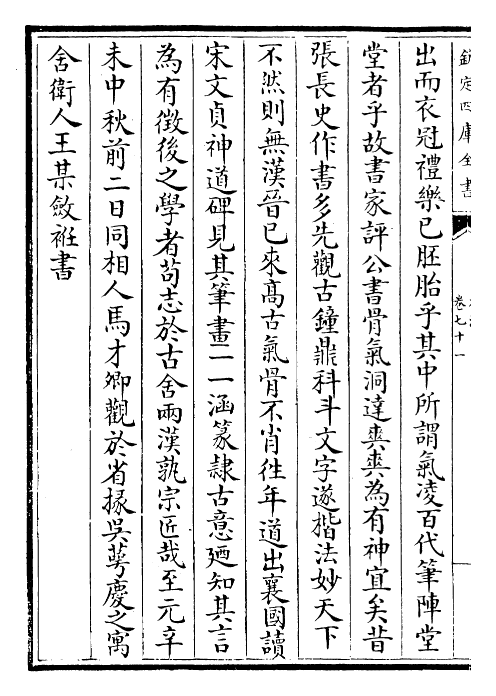 欽定四庫全書
卷七十一
出而衣冠禮樂已胚胎乎其中所謂氣凌百代筆陣堂
堂者乎故書家評公書骨氣洞達爽爽為有神宜矣昔
張長史作書多先觀古鐘鼎科斗文字遂楷法妙天下
不然則無漢晉已來髙古氣骨不肖徃年道出襄國讀
宋文貞神道碑見其筆畫一一涵篆隷古意廼知其言
為有徴後之學者苟志於古舍兩漢孰宗匠哉至元辛
未中秋前二日同相人馬才卿觀於省掾吳蕚慶之寓
舍衛人王某斂袵書